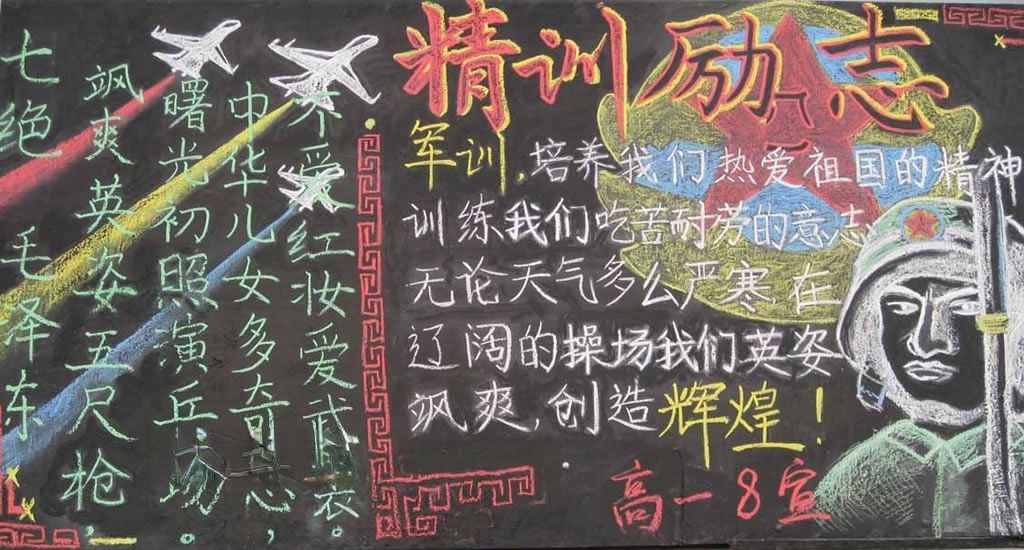 七绝 毛泽东
飒爽英姿五尺枪，
曙光初照演兵场。
中华儿女多奇志，
不爱红妆爱武装。
精训励志
军训，培养我们热爱祖国的精神
训练我们吃苦耐劳的意志
无论天气多么严寒，在
辽阔的操场我们英姿
飒爽，创造辉煌！
高一8宣